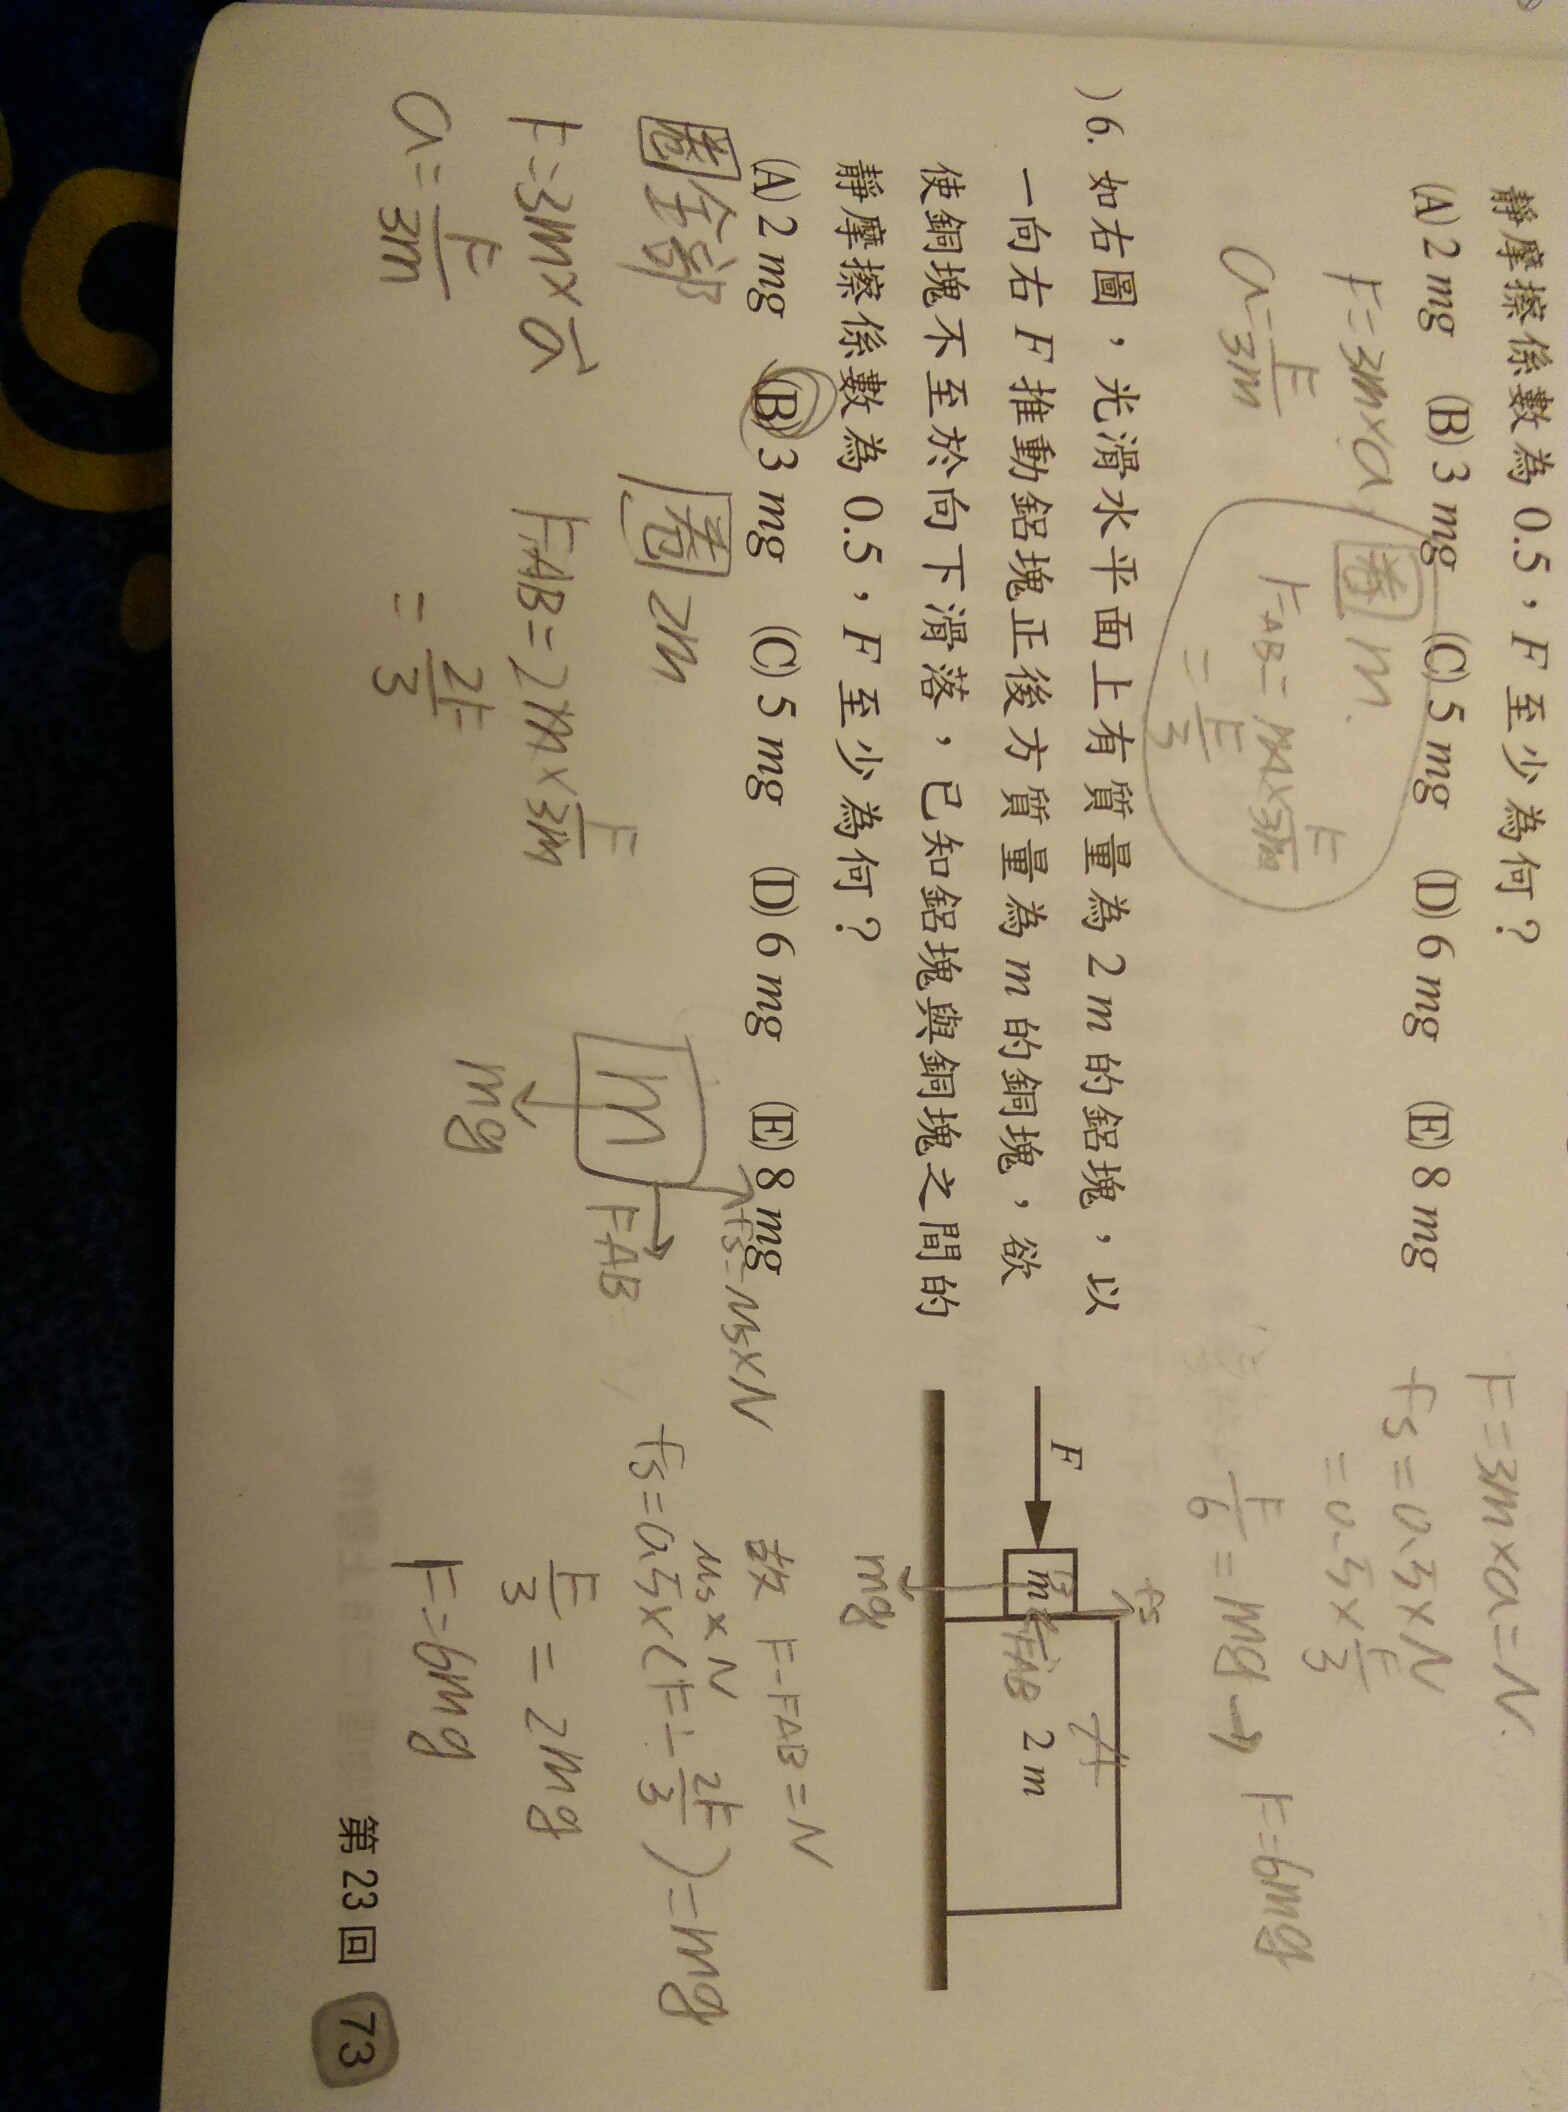 靜摩擦係數為 0.5,F 至少為何?
(A) 2 mg (B) 3 mg (C) 5 mg (D) 6 mg (E) 8 mg
F=3m×a
a=F/3m
圈 m.
F_AB=m×F/3m
=F/3
F=3m×a=N.
fs=0.5×N
=0.5×F/3
F/6=mg→ F=6mg
)6. 如右圖,光滑水平面上有質量為 2 m 的鋁塊,以
一向右 F 推動鋁塊正後方質量為 m 的銅塊,欲
使銅塊不至於向下滑落,已知鋁塊與銅塊之間的
靜摩擦係數為 0.5,F 至少為何?
(A) 2 mg (B) 3 mg (C) 5 mg (D) 6 mg (E) 8 mg
F
m
2 m
fs
FAB
mg
圈全部
F=3m×a
a=F/3m
圈 2m
FAB=2m×F/3m
=2F/3
m
mg
FAB
fs=μs×N
故 F-FAB=N
μs×N
fs=0.5×(F-2F/3)=mg
F/3=2mg
F=6mg
第 23 回 73